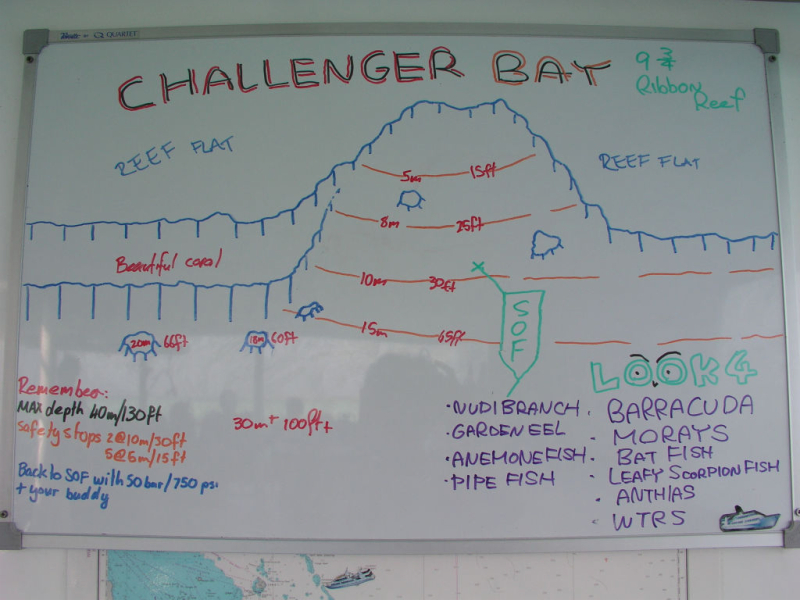 QUARTET
CHALLENGER BAY
9 3/4
Ribbon
Reef
REEF FLAT
REEF FLAT
5m 15ft
8m 25ft
Beautiful coral
10m 30ft
15m 45ft
SOF
20m 66ft
18m 60ft
LOOK 4
Remember:
MAX depth 40m/130ft
Safety stops 2@10m/30ft
5@5m/15ft
Back to SOF with 50bar/750 psi
+ your buddy
30m+ 100ft+
·NUDIBRANCH
·GARDENEEL
·ANEMONEFISH
·PIPE FISH
· BARRACUDA
· MORAYS
· BAT FISH
· LEAFY SCORPIONFISH
· ANTHIAS
· WTRS